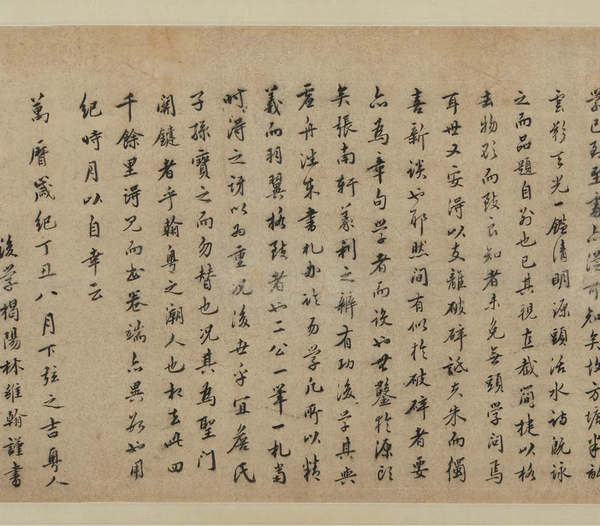 學已到至處占從可知矣故方塘半畝
雲影天光一鑑清明源頭活水詩既詠
之而品題自別也已其視直截簡捷以格
去物欲而致良知者未免無頭學問焉
耳世又安得以支離破碎詆夫朱而獨
喜新談也耶然間有似於破碎者要
亦為章句學者而設也其鑿於源頭
矣張南軒義利之辨有功後學其與
虛舟渉朱書札亦於易學凡所以精
義而羽翼格致者也二公一筆一札當
時得之訝以為重況後世乎宜詹氏
子孫寶之而勿替也況其為聖門
關鍵者乎翰粵之潮人也相去此四
千餘里得見而書卷端亦異數也用
紀時月以自幸云
萬曆歲紀丁丑八月下弦之吉粵人
後學揭陽林維翰謹書